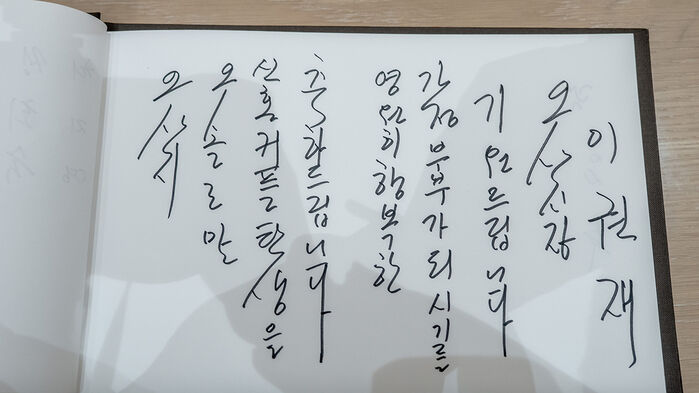 오산시
오!솔로만
신혼커플 탄생을
축하드립니다
영원히 행복한
가정 부부가 되시기를
기원드립니다
오산시장
이권재